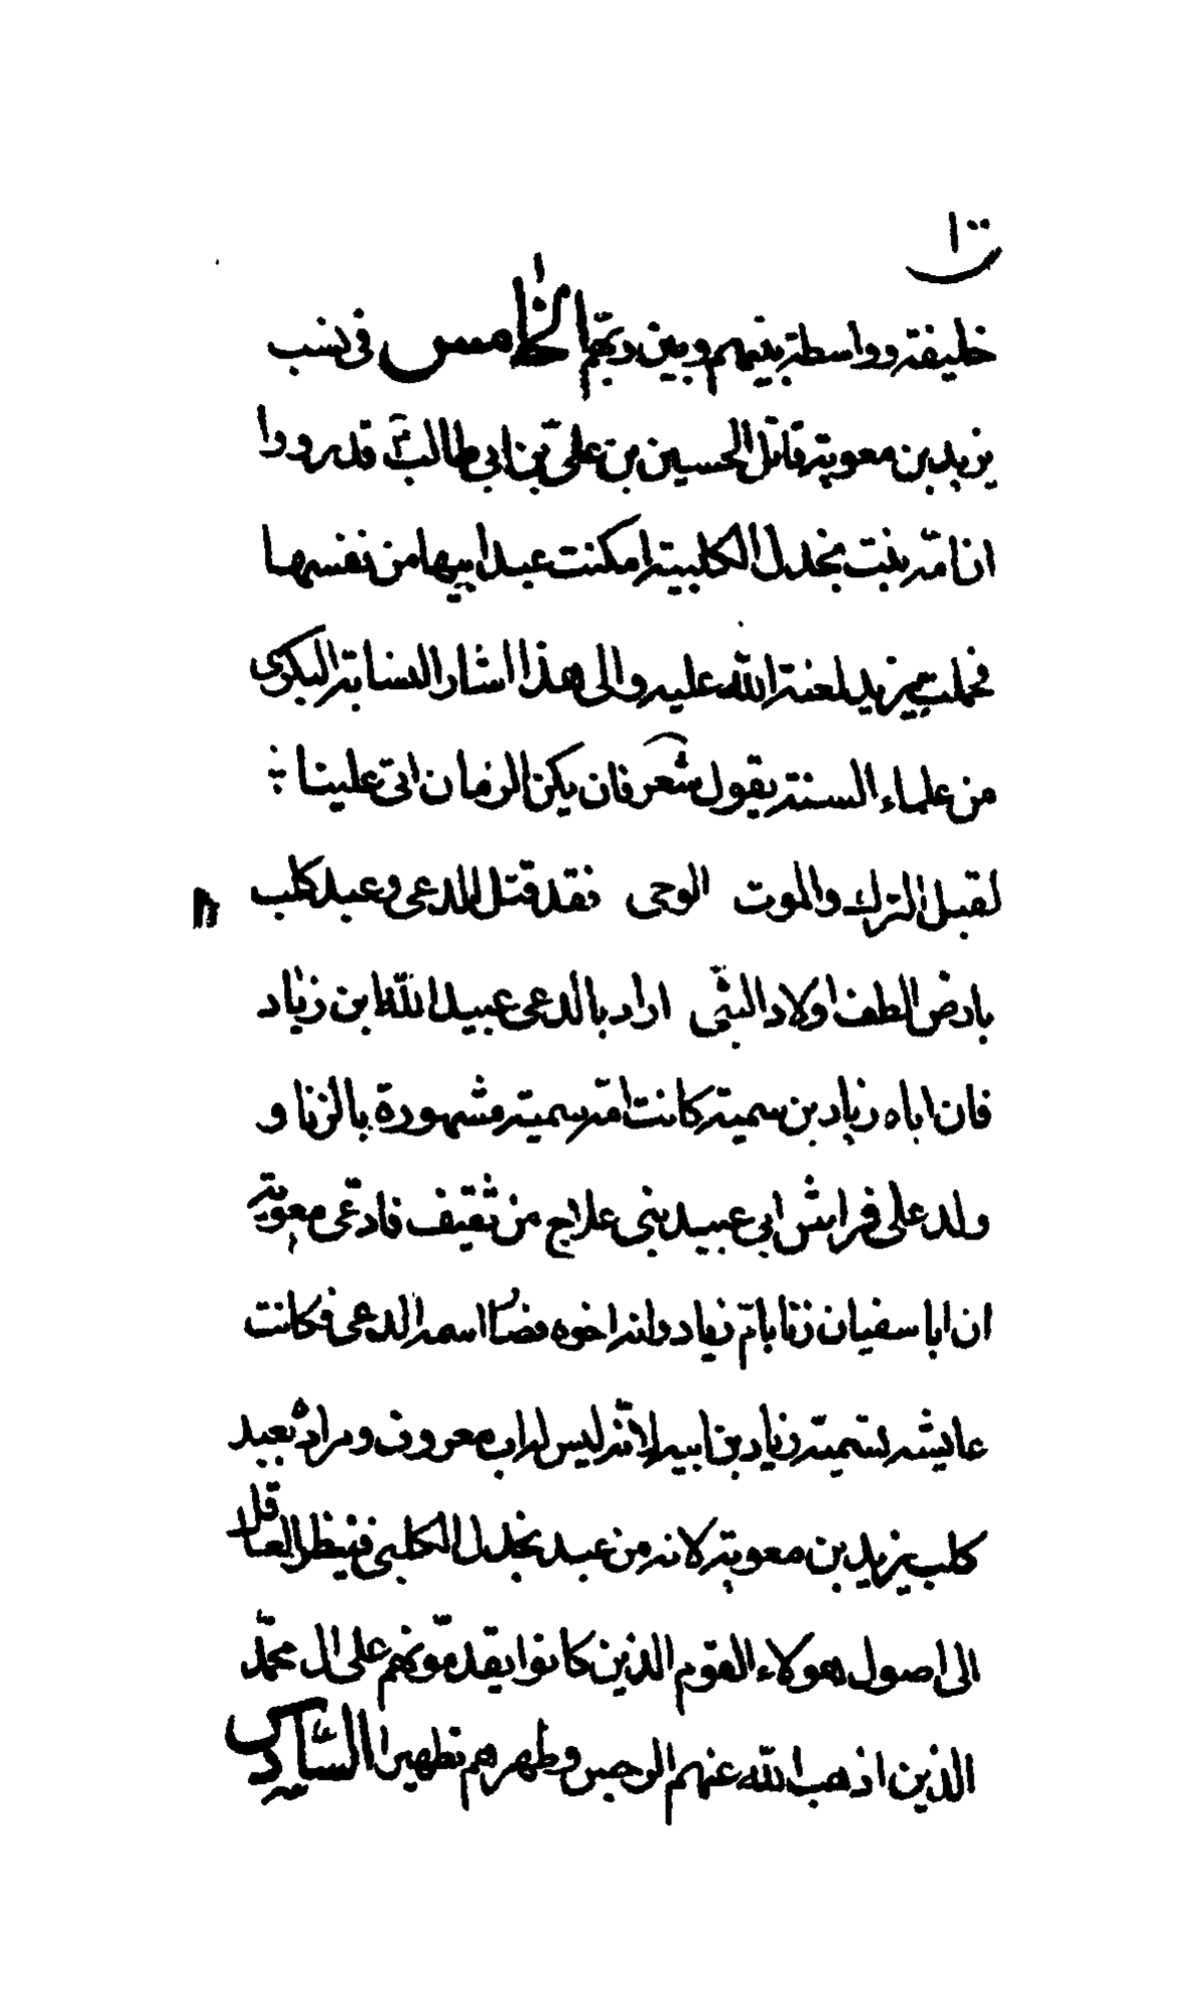 ١٠٠
خليفة وواسطة بينهم وبين ربهم الخامس فى نسب
يزيد بن معوية قاتل الحسين بن علىّ بن ابى طالب ع قد رووا
ان امّه بنت بخدل الكلبية امكنت عبد ابيها من نفسها
فحملت بيزيد لعنة الله عليه والى هذا اشار النسابة البكرى
من علماء السنة يقول شعر فان يكن الزمان اتى علينا
لقبل الترك والموت الوحى فقد قتل الدعى وعبد كلب
بارض الطف اولاد النبّى اراد بالدعى عبيد الله ابن زياد
فان اباه زياد بن سمية كانت امّه سمية مشهورة بالزنا و
ولد على فراش ابى عبيد بنى علاج من ثقيف فادعى معوية
ان ابا سفيان زنا بامّ زياد وانه اخوه فصار اسمه الدعى فكانت
عايشه تسميّه زياد بن ابيه لانّه ليس له اب معروف ومراده بعبد
كلب يزيد بن معوية لانه من عبد بخدل الكلبى فينظر العاقل
الى اصول هولاء القوم الذين كانوا يقدمّونهم على ال محمّد
الذين اذهب الله عنهم الرجس وطهرهم تطهيرا السّادس